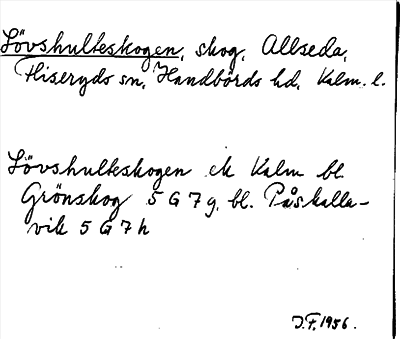 Lövshulteskogen, skog, Allseda,
Hiseryds sn, Handbörds hd, Kalm. l.
Lövshulteskogen ek Kalm bl
Grönskog 5 G 7 g, bl. Påskalla-
vik 5 G 7 h
J.F. 1956.